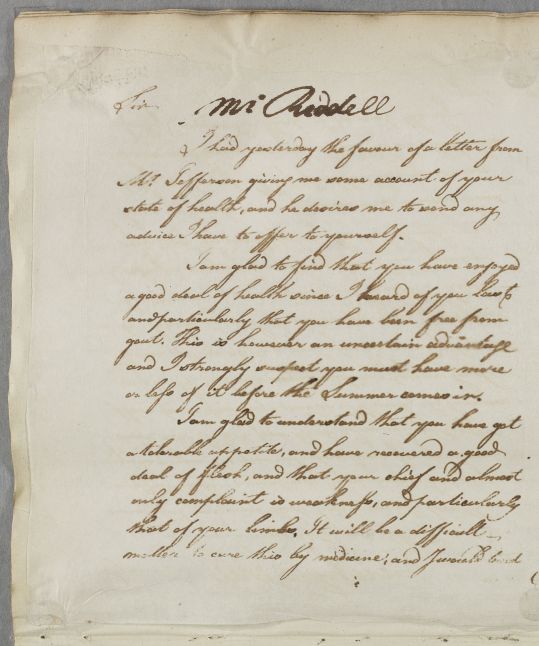 Sir
Mr Riddell
I had yesterday the favour of a letter from
Mr Jefferson giving me some account of your
state of health, and he desires me to send any
advice I have to offer to yourself.
I am glad to find that you have enjoyed
a good deal of health since I heard of you last
and particularly that you have been free from
gout. This is however an uncertain advantage
and I strongly suspect you must have more
or less of it before the Summer comes in.
I am glad to understand that you have got
a tolerable appetite, and have recovered a good
deal of flesh, and that your chief and almost
only complaint is weakness, and particularly
that of your limbs. It will be a difficult
matter to cure this by medicine; and I would